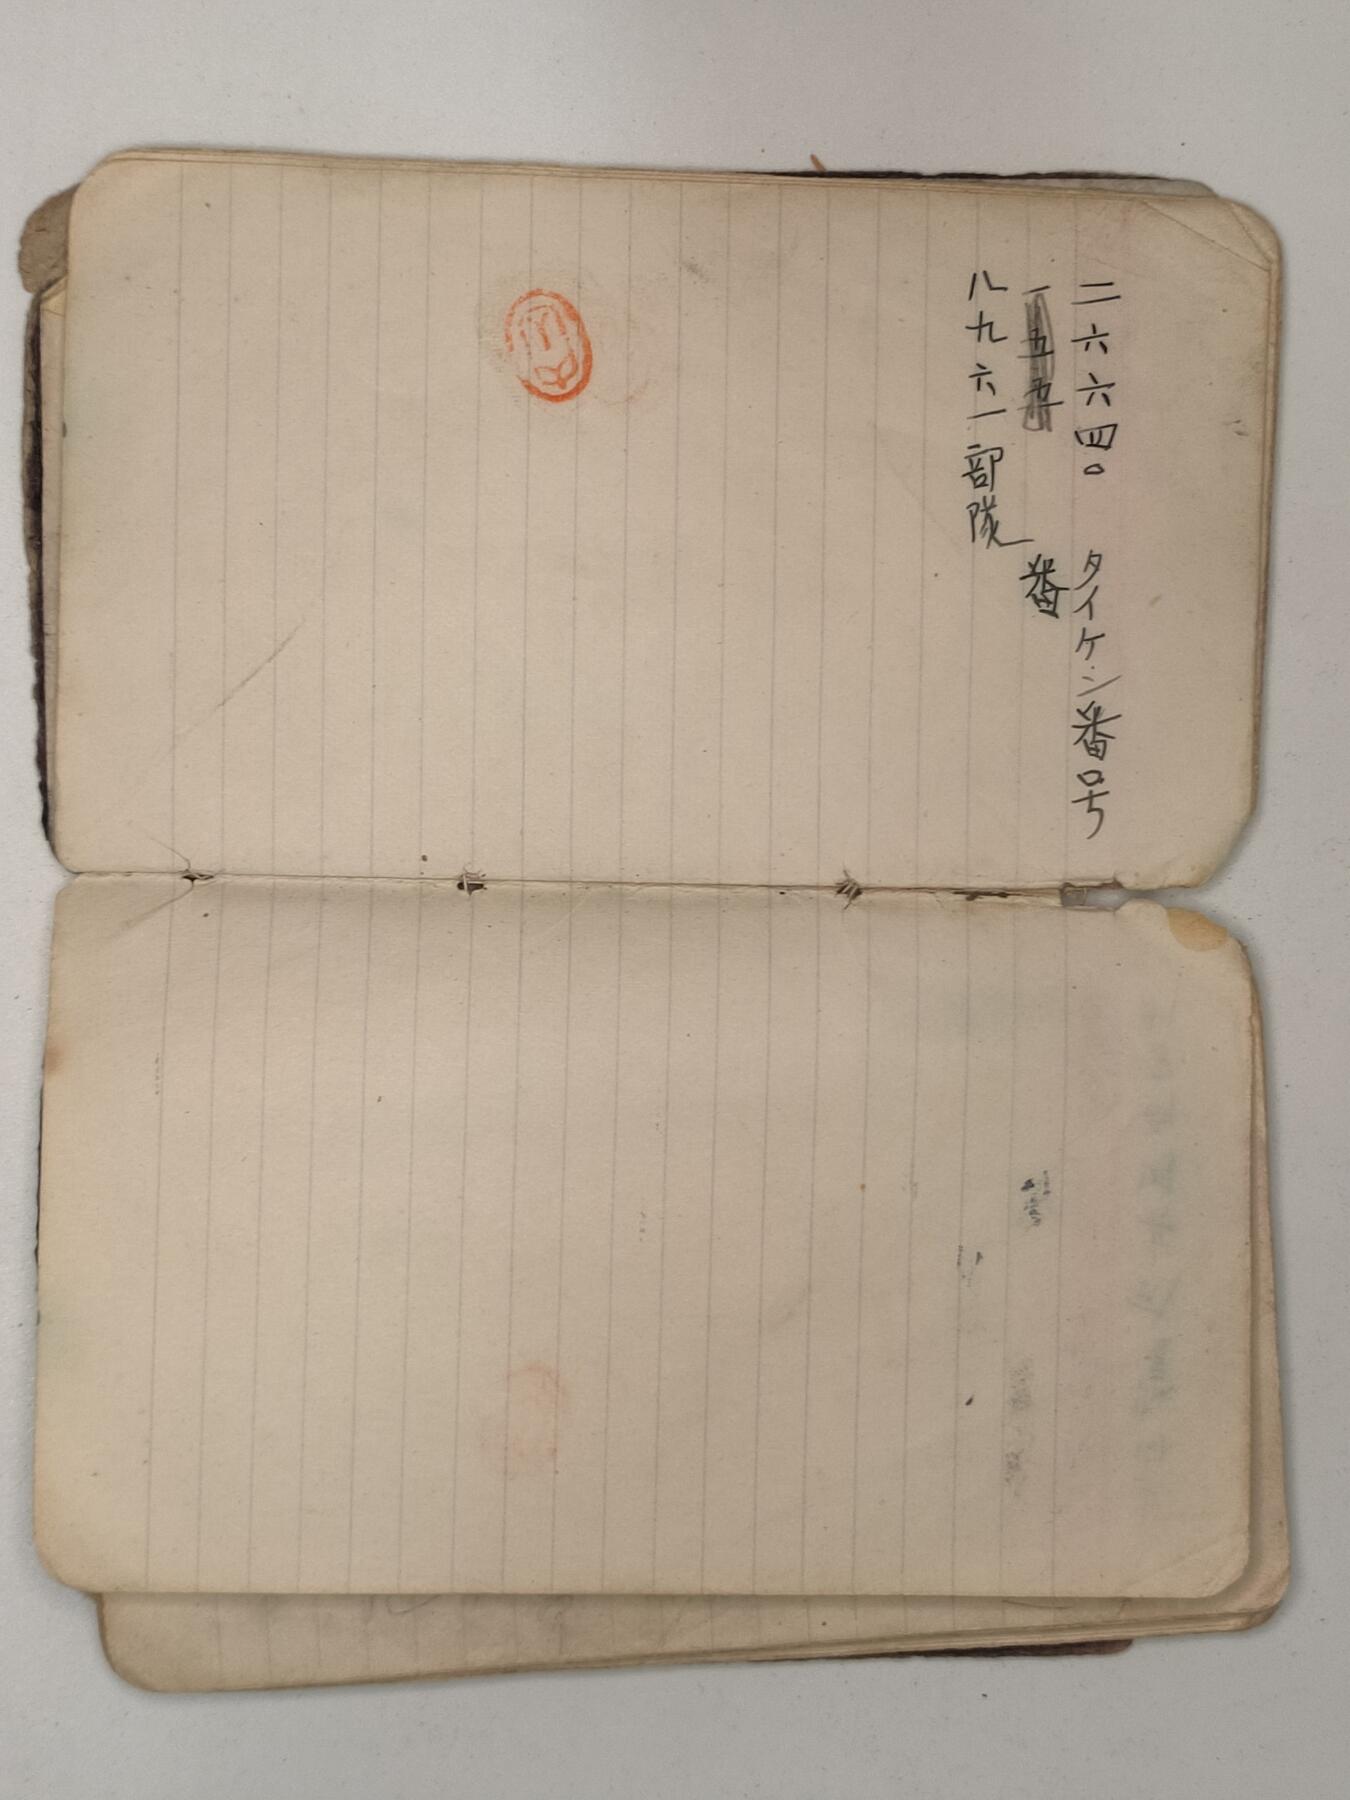 二六六四。 タイケン番号
一五五 番
八九六一部隊